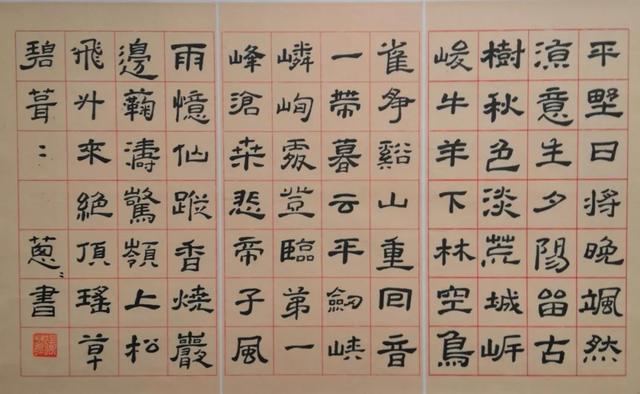 平野日將晚颯然
涼意生夕陽畱古
樹秋色淡荒城岸
峻牛羊下林空鳥
雀爭谿山重回音
一帶暮云平劒峽
嶙峋處登臨第一
峰滄桑悲帝子風
雨憶仙蹤香燒巖
邊鞠濤驚嶺上松
飛升來絕頂瑤草
碧葺〻 蔥書